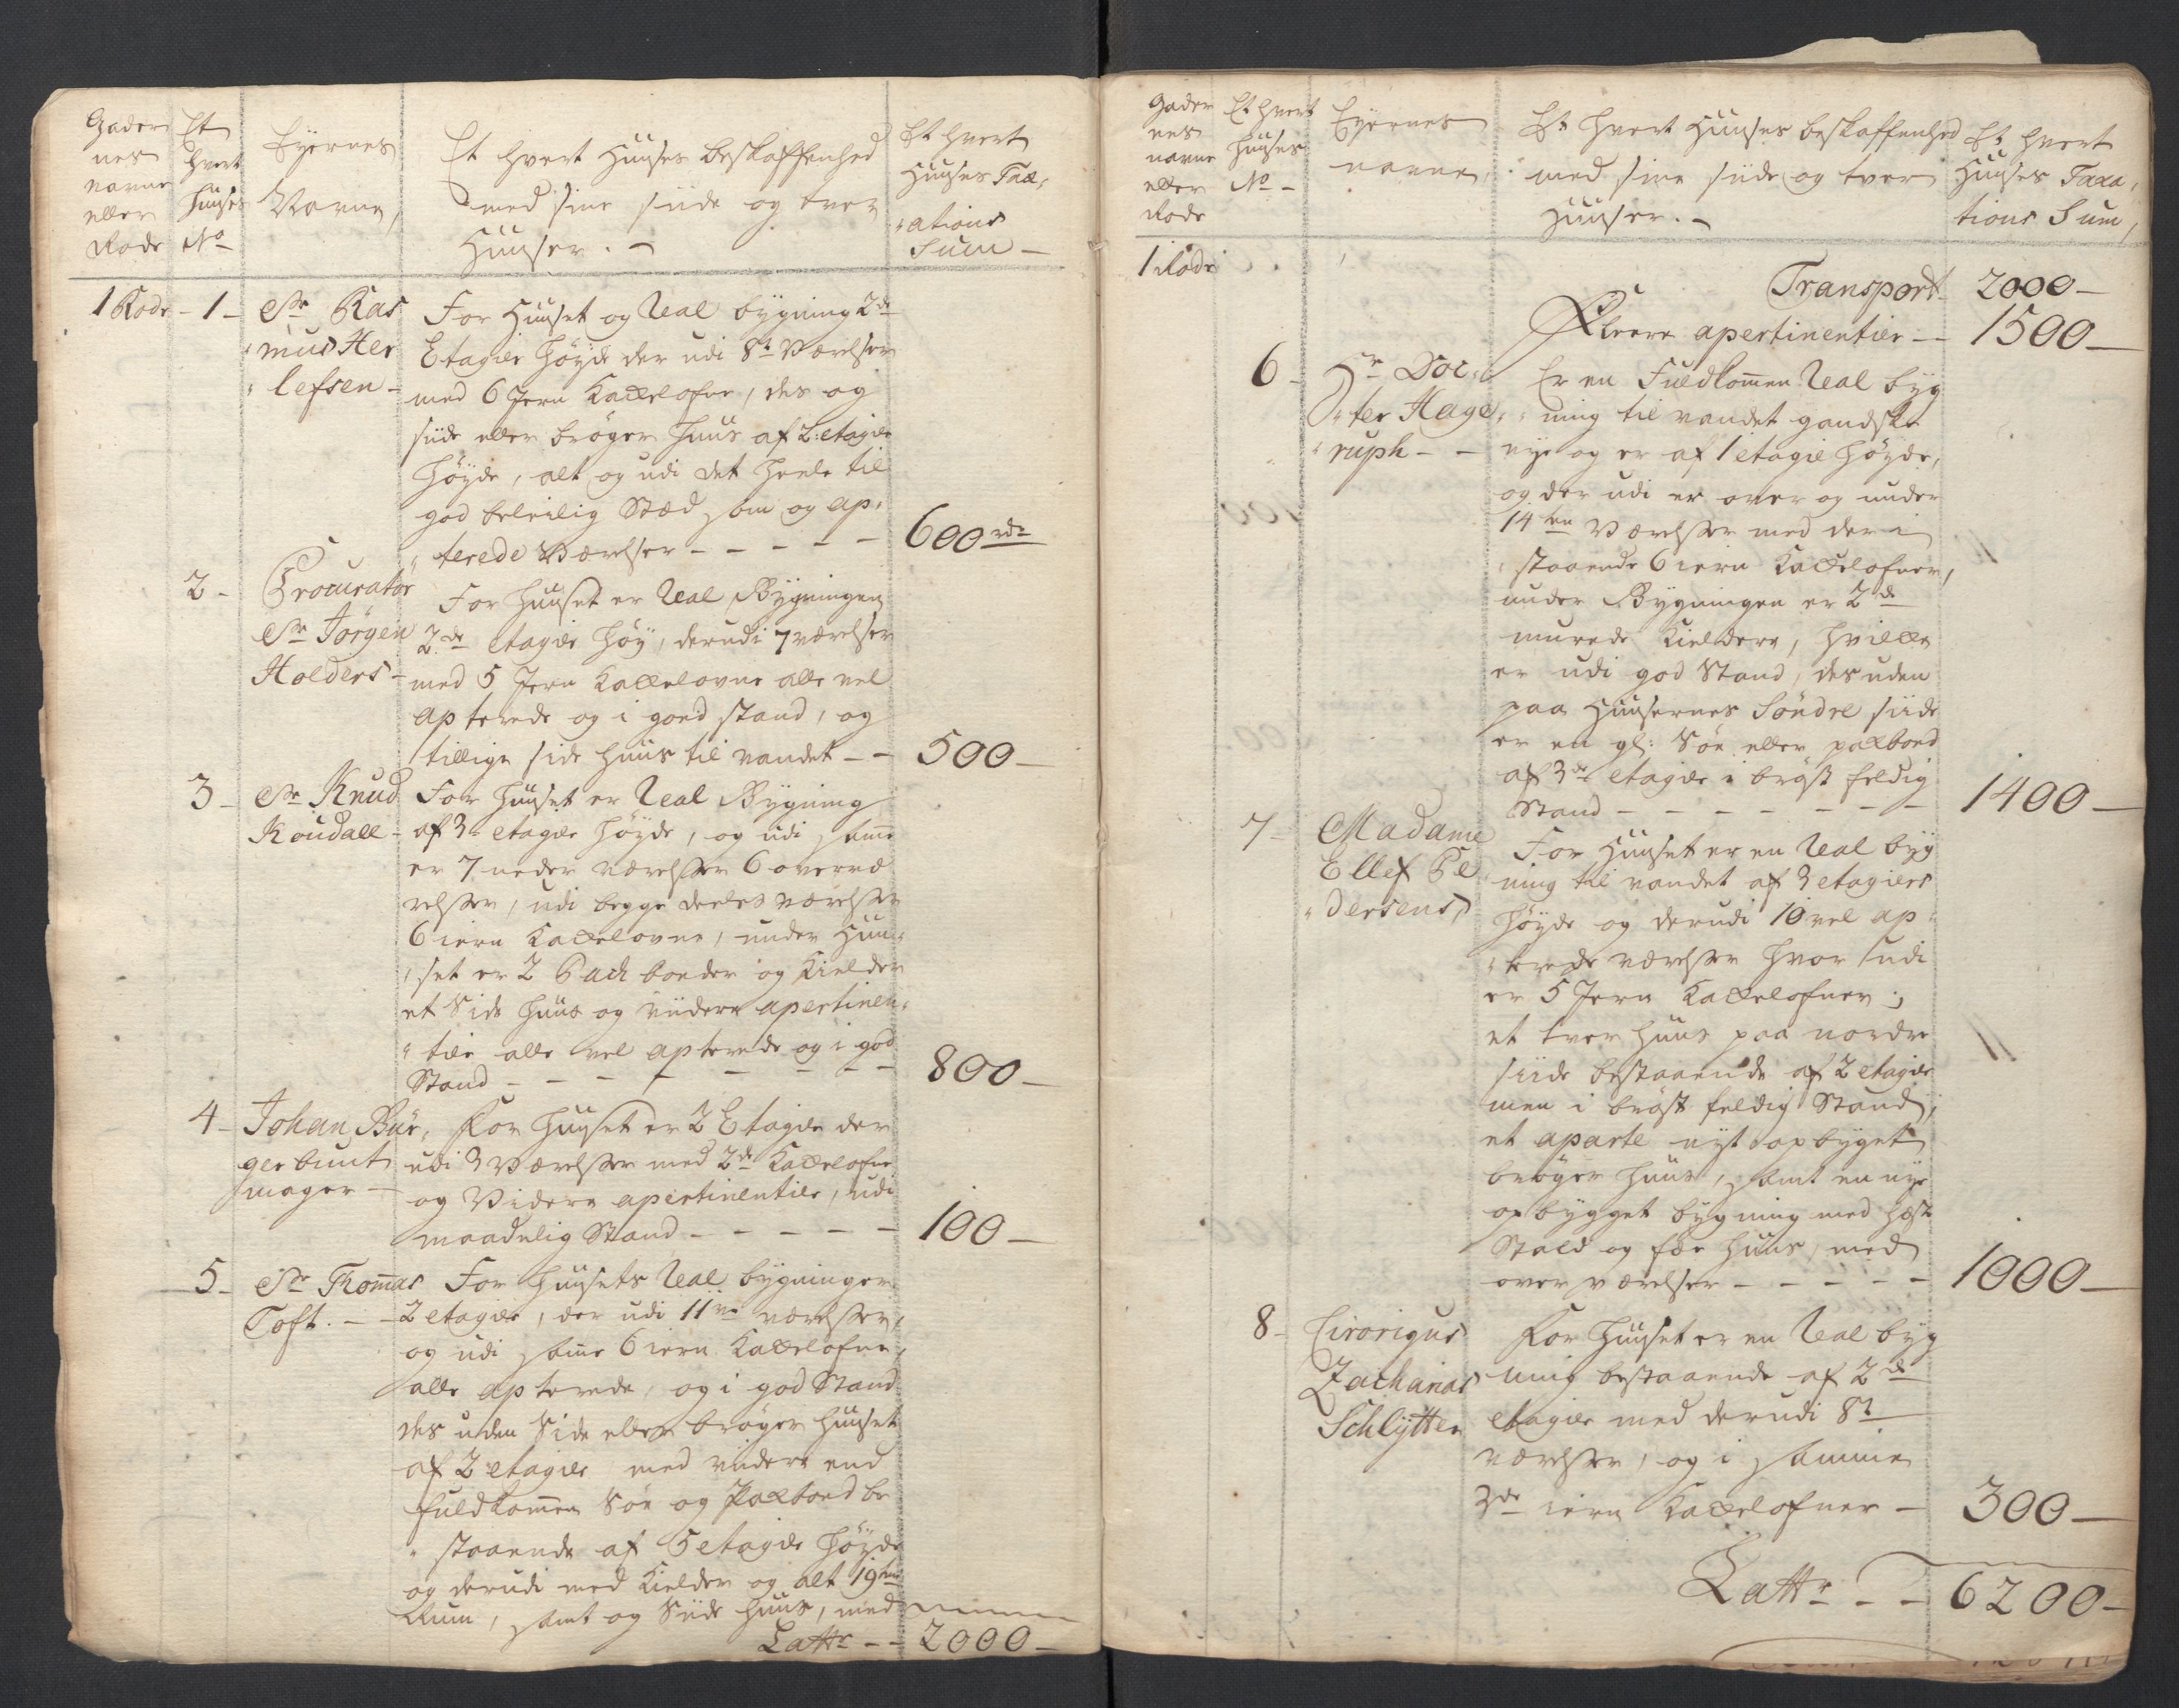 Gader
nes
navne
eller
Rode
Et
hvert
Huuses
No
Eyernes
Navne,
Et hvert Huuses beskaffenhed
med sine siide og tver
Huuser. -
Et hvert
Huuses Tax,
ations
Sum -
1 Rode - 1 -
Sr Ras
mus Her
lefsen -
For Huuset og Ual bygning 2de
Etagies høyde der udi 8t Værelser
med 6 Jern Kackelofne, des og
siide eller brøger huus af 2: etagies
høyde, alt og udi det heele til
god beleilig Stæd som og ap,
terede Værelser - - - - -
600 rdr
2 -
Procurator
Sr Jörgen
Holders -
For Huuset er Ual Bygningen
2de etagies høy, derudi 7 værelser
med 5 Jern Kackelovne alle vel
apterede og i goed stand, og
tillige side huus til vandet - -
500 -
3 -
Sr Knud
Koudall -
For Huuset er Ual Bygning
af 3 etagies høyde, og udi samme
er 7 neder værelsser 6 overvæ
relsser, udi begge deeles værelsser
6 iern Kackelovne, under Huu,
set er 2 Pack boeder og Kielder
et Side huus og viidere apertinen,
tier alle vel apterede og i god
Stand - - - - - - -
800 -
4 -
Johan Bür,
ger bunt
mager -
For Huuset er 2 Etagies der
udi 3 Værelsser med 2de Kackelofne
og Videre apertinentier, udi
maadelig Stand - - - - -
100 -
5 -
Sr Thommas
Toft. -
For Huusets Ual bygninger
2 etagies, der udi 11ve værelsser,
og udi samme 6 iern Kackelofne,
alle apterede, og i god Stand
des uden Side eller brøger huuset
af 2 etagies med viidere end
fuldkommen Søe og Packboed be
staaende af 5 etagies høyde
og derudi med Kielder og alt 19ten
Rum, samt og Siide huus, med
Lattr - - 2000 -
Gader
nes
navne
eller
Rode
Et hvert
Huuses
No -
Eyernes
navne,
Et hvert Huuses beskaffenhed
med sine siide og tver
Huuser. -
Et hvert
Huuses Taxa,
tions Sum,
1 Rode
Transport 2000 -
Fleere apertinentier - - 1500 -
6 -
Hr Doc,
ter Hage,
ruph - -
Er en Fuldkommen Ual byg
ning til vandet gandske
nye og er af 1 etagie høyde,
og der udi er over og under
14ten Værelsser med der i
staaende 6 iern Kackelofner,
under Bygningen er 2de
murede Kieldere, hvilke
er udi god Stand, des uden
paa Huusernes Söndre siide
er en gl: Söe eller pakboed
af 3de etagies i bröstfeldig
Stand - - - - - - -
1400 -
7 -
Madame
Ellef Pe
dersens
For Huuset er en Ual byg
ning til vandet af 3 etagiers
høyde og derudi 10 vel ap,
terede værelsser hvor udi
er 5 Jern Kackelofner;
et tver huus paa nordre
siide bestaaende af 2 etagies
men i bröst feldig Stand,
et aparte nyt opbyget
brøger huus, samt en nye
opbygget bygning med hæste
Stald og fæe huus, med
over værelser - - - - -
1000 -
8 -
Cirorigus
Zacharias
Schlytter
For Huuset er en Ual byg
ning bestaaende af 2de
etagies med derudi 8t
værelsser, og i samme
3de iern Kackelofner -
300 -
Lattr - - 6200 -